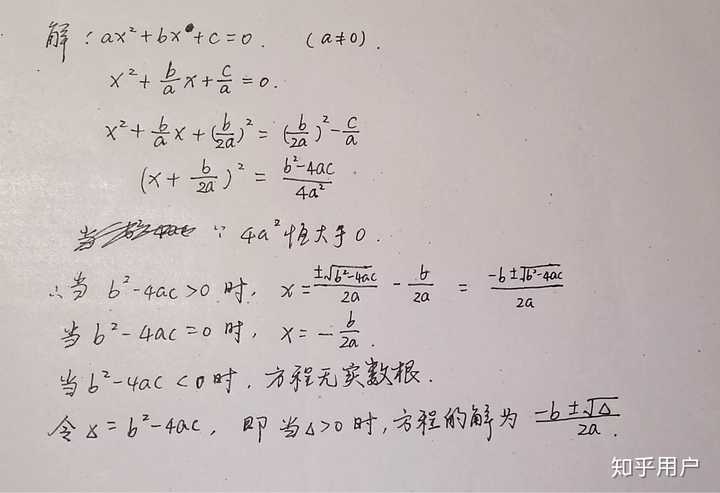 解：ax²+bx+c=0. (a≠0).
x²+b/a x+c/a=0.
x²+b/a x+(b/2a)²=(b/2a)²-c/a
(x+b/2a)²=(b²-4ac)/4a²
∵ 4a²恒大于0.
∴当 b²-4ac>0 时, x=±√(b²-4ac)/2a - b/2a = (-b±√(b²-4ac))/2a
当 b²-4ac=0 时, x=-b/2a.
当 b²-4ac<0时, 方程无实数根.
令 Δ=b²-4ac, 即 当Δ>0 时, 方程的解为 (-b±√Δ)/2a.
知乎用户